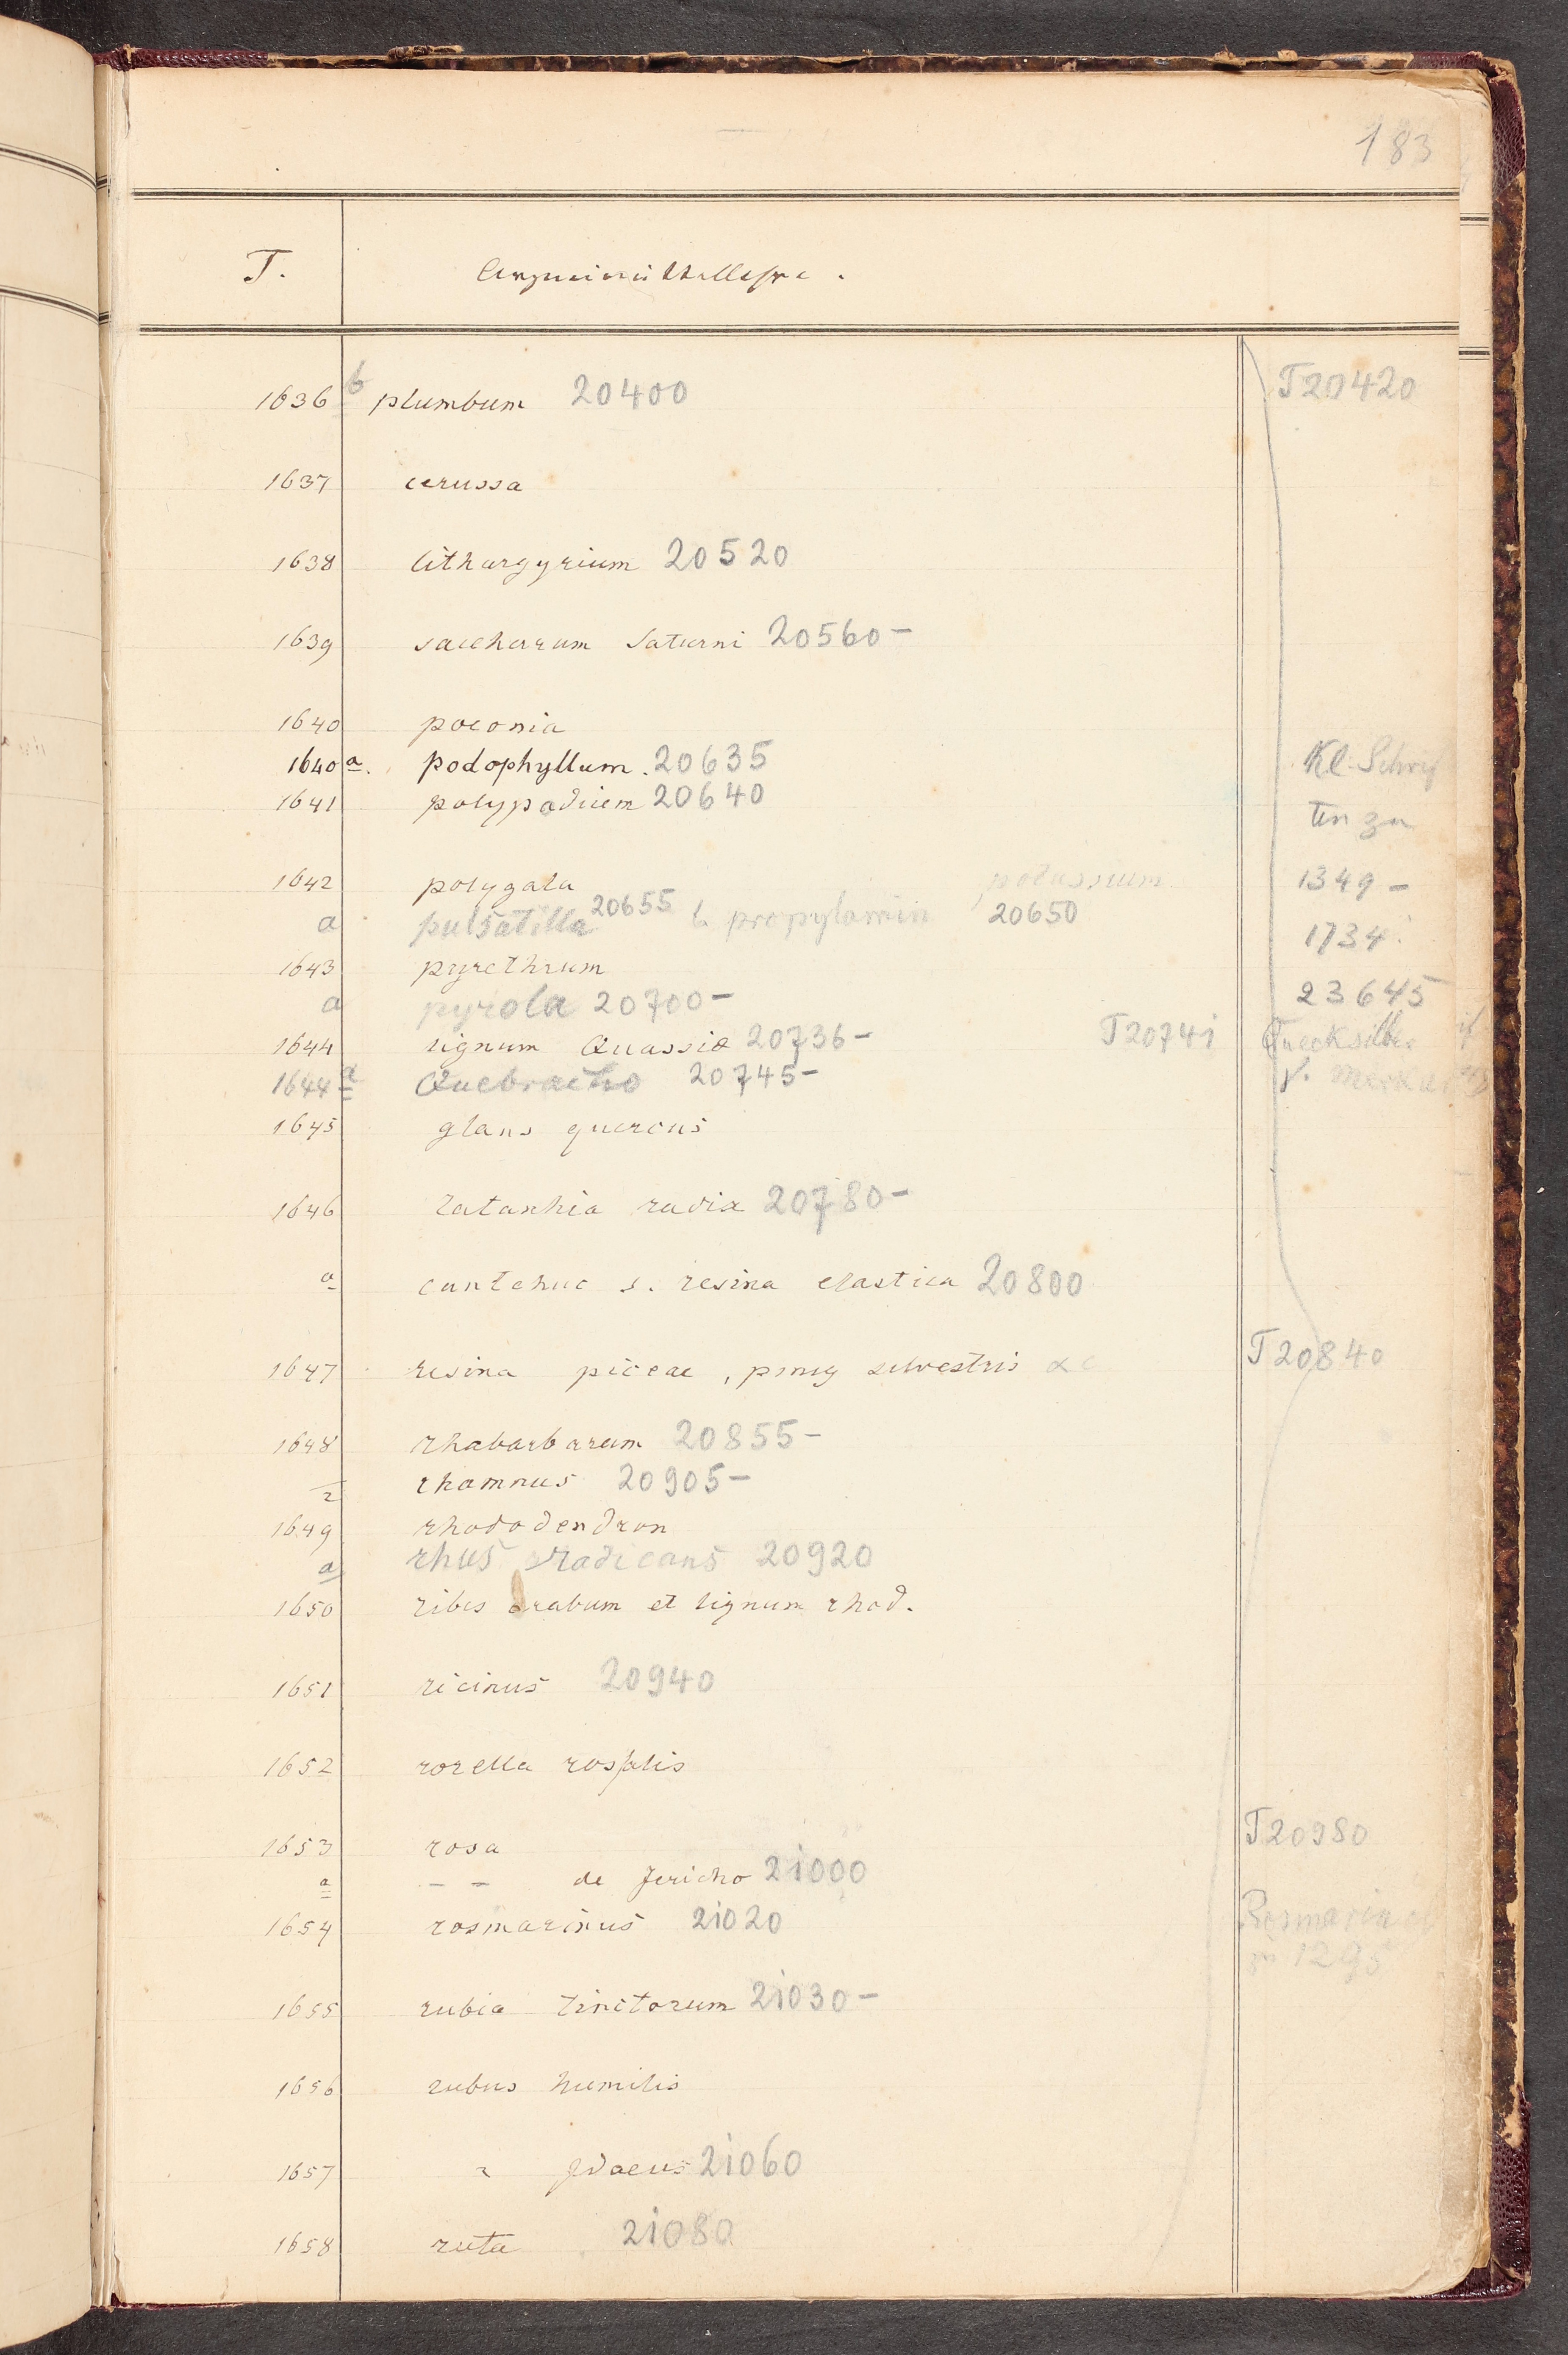 183
T. Arzneimittellehre.
1636 b plumbum 20400 T20420
1637 cerussa
1638 lithargyrium 20520
1639 saccharum Saturni 20560-
1640 poeonia
1640 a. podophyllum. 20635 Kl. Schrif
1641 polypodium 20640 ten zu
1642 polygala potassium 1349 -
a pulsatilla 20655 b propylamin 20650 1734
1643 pyrethrum
a pyrola 20700- 23645
1644 lignum Quassiae 20736- T20741 Quecksilber
1644 a Quebracho 20745- v. Merkur
1645 glans quercus
1646 ratanhia radix 20780-
a cautchuc s. resina elastica 20800
1647 resina piceae, pinus silvestris &c T20840
1648 rhabarbarum 20855-
a rhamnus 20905-
1649 rhododendron
a rhus radicans 20920
1650 ribes arabum et lignum rhod.
1651 ricinus 20940
1652 rorella rossolis
1653 rosa T20980
a - - de Jericho 21000
1654 rosmarinus 21020 Rosmarin
zu 1295
1655 rubia tinctorum 21030-
1656 rubus humilis
1657 " Idaeus 21060
1658 ruta 21080